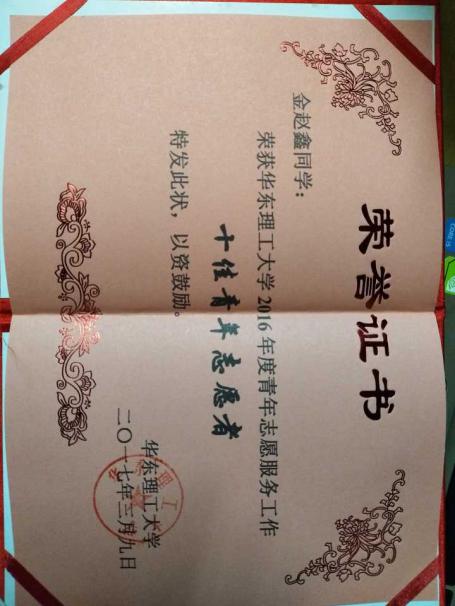 荣誉证书
金赵鑫同学：
荣获华东理工大学2016年度青年志愿服务工作
十佳青年志愿者
特发此状，以资鼓励。
华东理工大学
二〇一七年三月九日